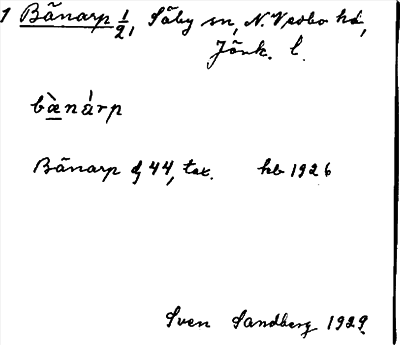 1 Bänarp 1/2, Säby sn, N. Vedbo hd,
Jönk. l.
bæ̀nàrp
Bänarp dj 44, tax. hb 1926
Sven Sandberg 1929.